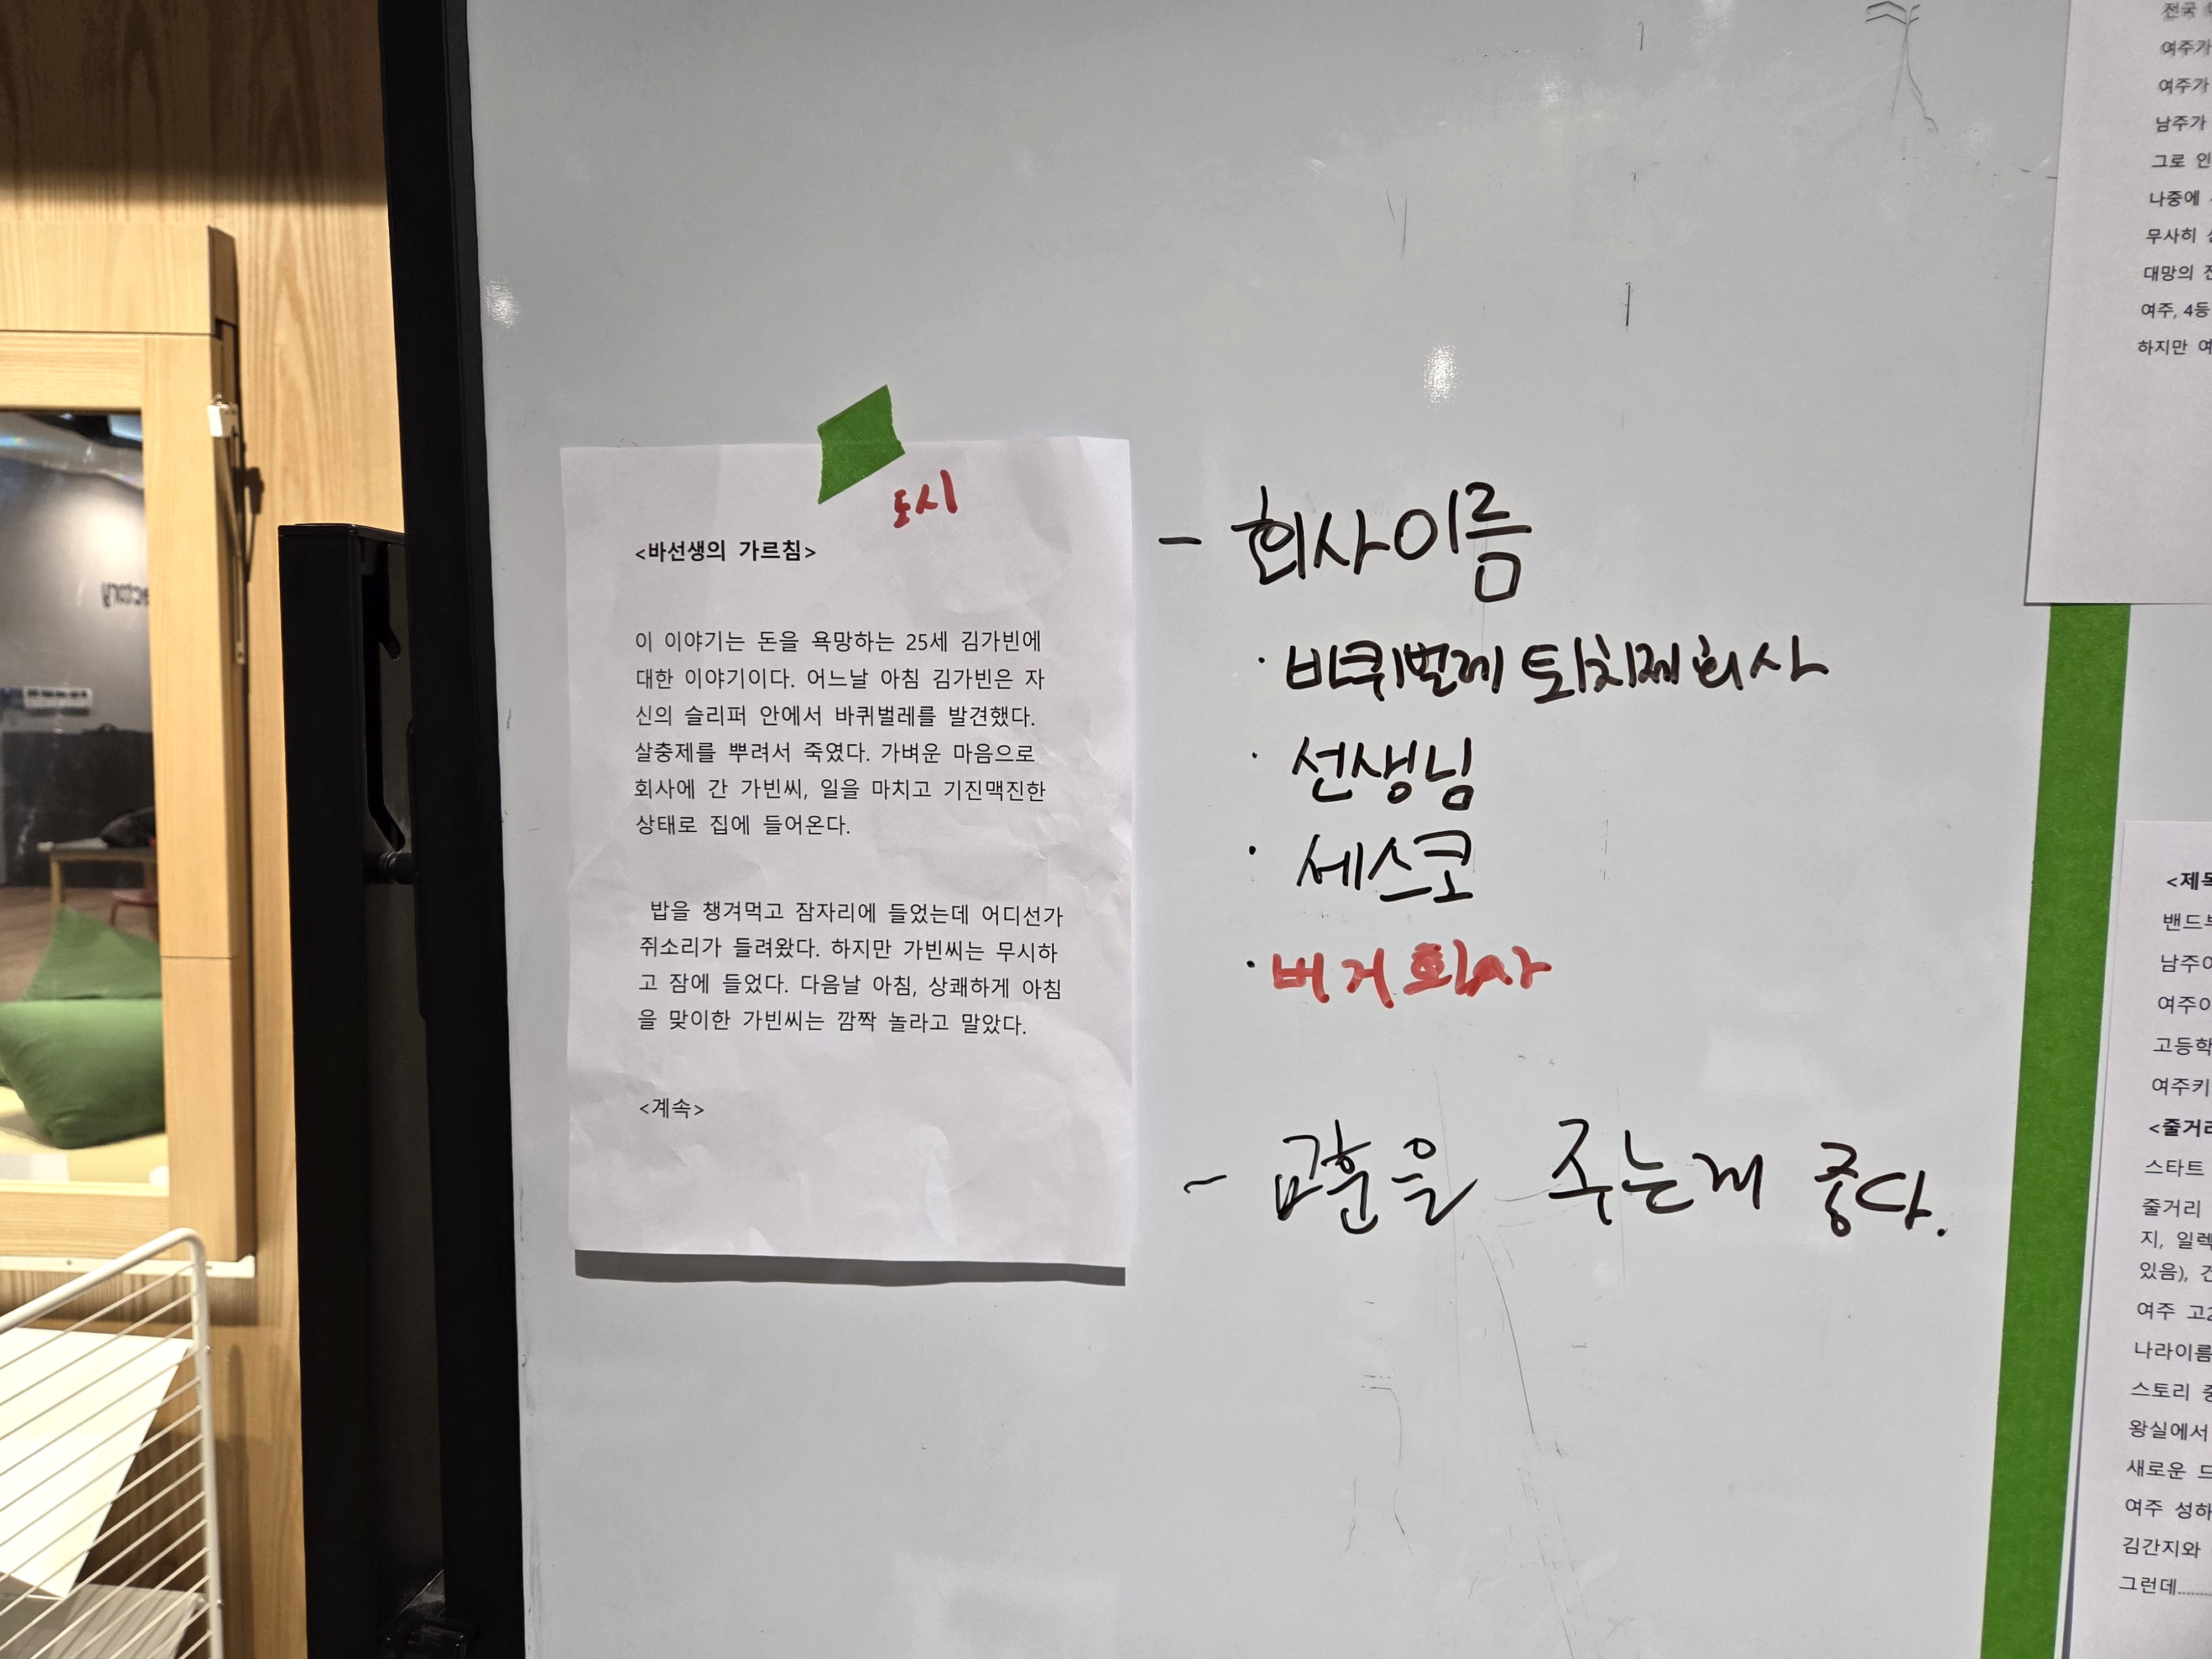 도시
<바선생의 가르침>
이 이야기는 돈을 욕망하는 25세 김가빈에
대한 이야기이다. 어느날 아침 김가빈은 자
신의 슬리퍼 안에서 바퀴벌레를 발견했다.
살충제를 뿌려서 죽였다. 가벼운 마음으로
회사에 간 가빈씨, 일을 마치고 기진맥진한
상태로 집에 들어온다.
밥을 챙겨먹고 잠자리에 들었는데 어디선가
쥐소리가 들려왔다. 하지만 가빈씨는 무시하
고 잠에 들었다. 다음날 아침, 상쾌하게 아침
을 맞이한 가빈씨는 깜짝 놀라고 말았다.
<계속>
- 회사이름
· 바퀴벌레 퇴치제 회사
· 선생님
· 세스코
· 버거 회사
- 교훈을 주는게 좋다.
전국
여주가
여주가
남주가
그로 인
나중에
무사히
대망의
여주, 4등
하지만 여
<제목
밴드부
남주이
여주이
고등학
여주키
<줄거리
스타트
줄거리
지, 일렉
있음),
여주 고2
나라이름
스토리 중
왕실에서
새로운 드
여주 성하
김간지와
그런데........